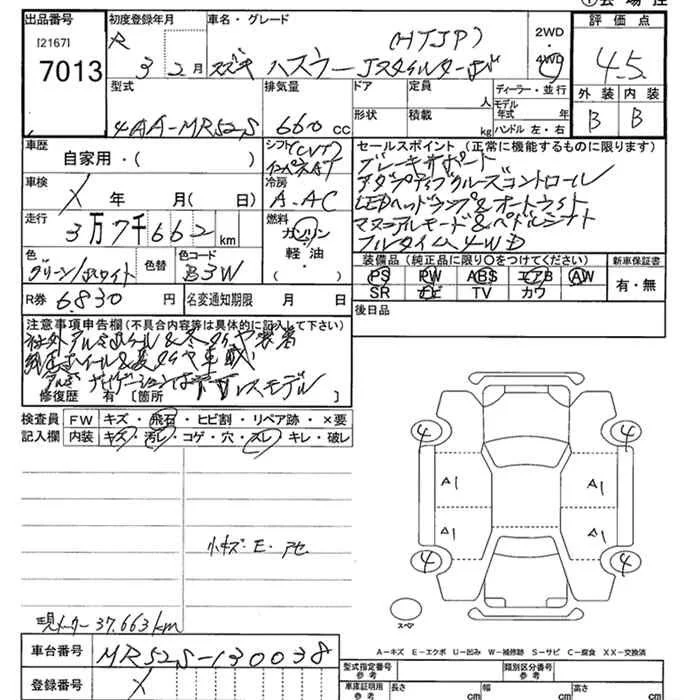 出品番号
[2167]
7013
初度登録年月
R
3年 2月
車名・グレード
(HTJP)
スズキ ハスラー Jスタイルターボ
2WD
4WD
評価点
4.5
外装 内装
B B
型式
4AA-MR52S
排気量
660 cc
ドア
形状
定員 人
積載 kg
ディーラー・並行
モデル年式 年
ハンドル 左・右
車歴
自家用・( )
シフト(CVT)
インパネAT
車検
X 年 月( 日)
冷房
A.AC
走行
3万7千662 km
燃料
ガソリン
軽油
( )
色
グリーン/ホワイト
色替
色コード
B3W
R券 6.830 円
名変通知期限 月 日
セールスポイント (正常に機能するものに限ります)
ブレーキサポート
アダプティブクルーズコントロール
LEDヘッドランプ&オートライト
マニュアルモード&パドルシフト
フルタイム4WD
装備品 (純正品に限り○をつけてください)
新車保証書
PS PW ABS エアB AW
SR ナビ TV カワ
有・無
後日品
注意事項申告欄 (不具合内容等は具体的に記入して下さい)
社外アルミホイール&冬タイヤ装着
純正ホイール&夏タイヤ車載
ナビゲーションは
レスモデル
修復歴 有 [箇所
検査員
記入欄
FW キズ・飛石・ヒビ割・リペア跡・×要
内装 キズ・汚レ・コゲ・穴・スレ・キレ・破レ
小キズ・E・アセ
現メーター 37.663km
4 4
A1 A1
A1 A1
4 4
スペア
A-キズ E-エクボ U-凹み W-補修跡 S-サビ C-腐食 XX-交換済
車台番号 MR52S-130038
登録番号 X
型式指定番号 参考
類別区分番号 参考
車庫証明用 参考
長さ cm
幅 cm
高さ cm